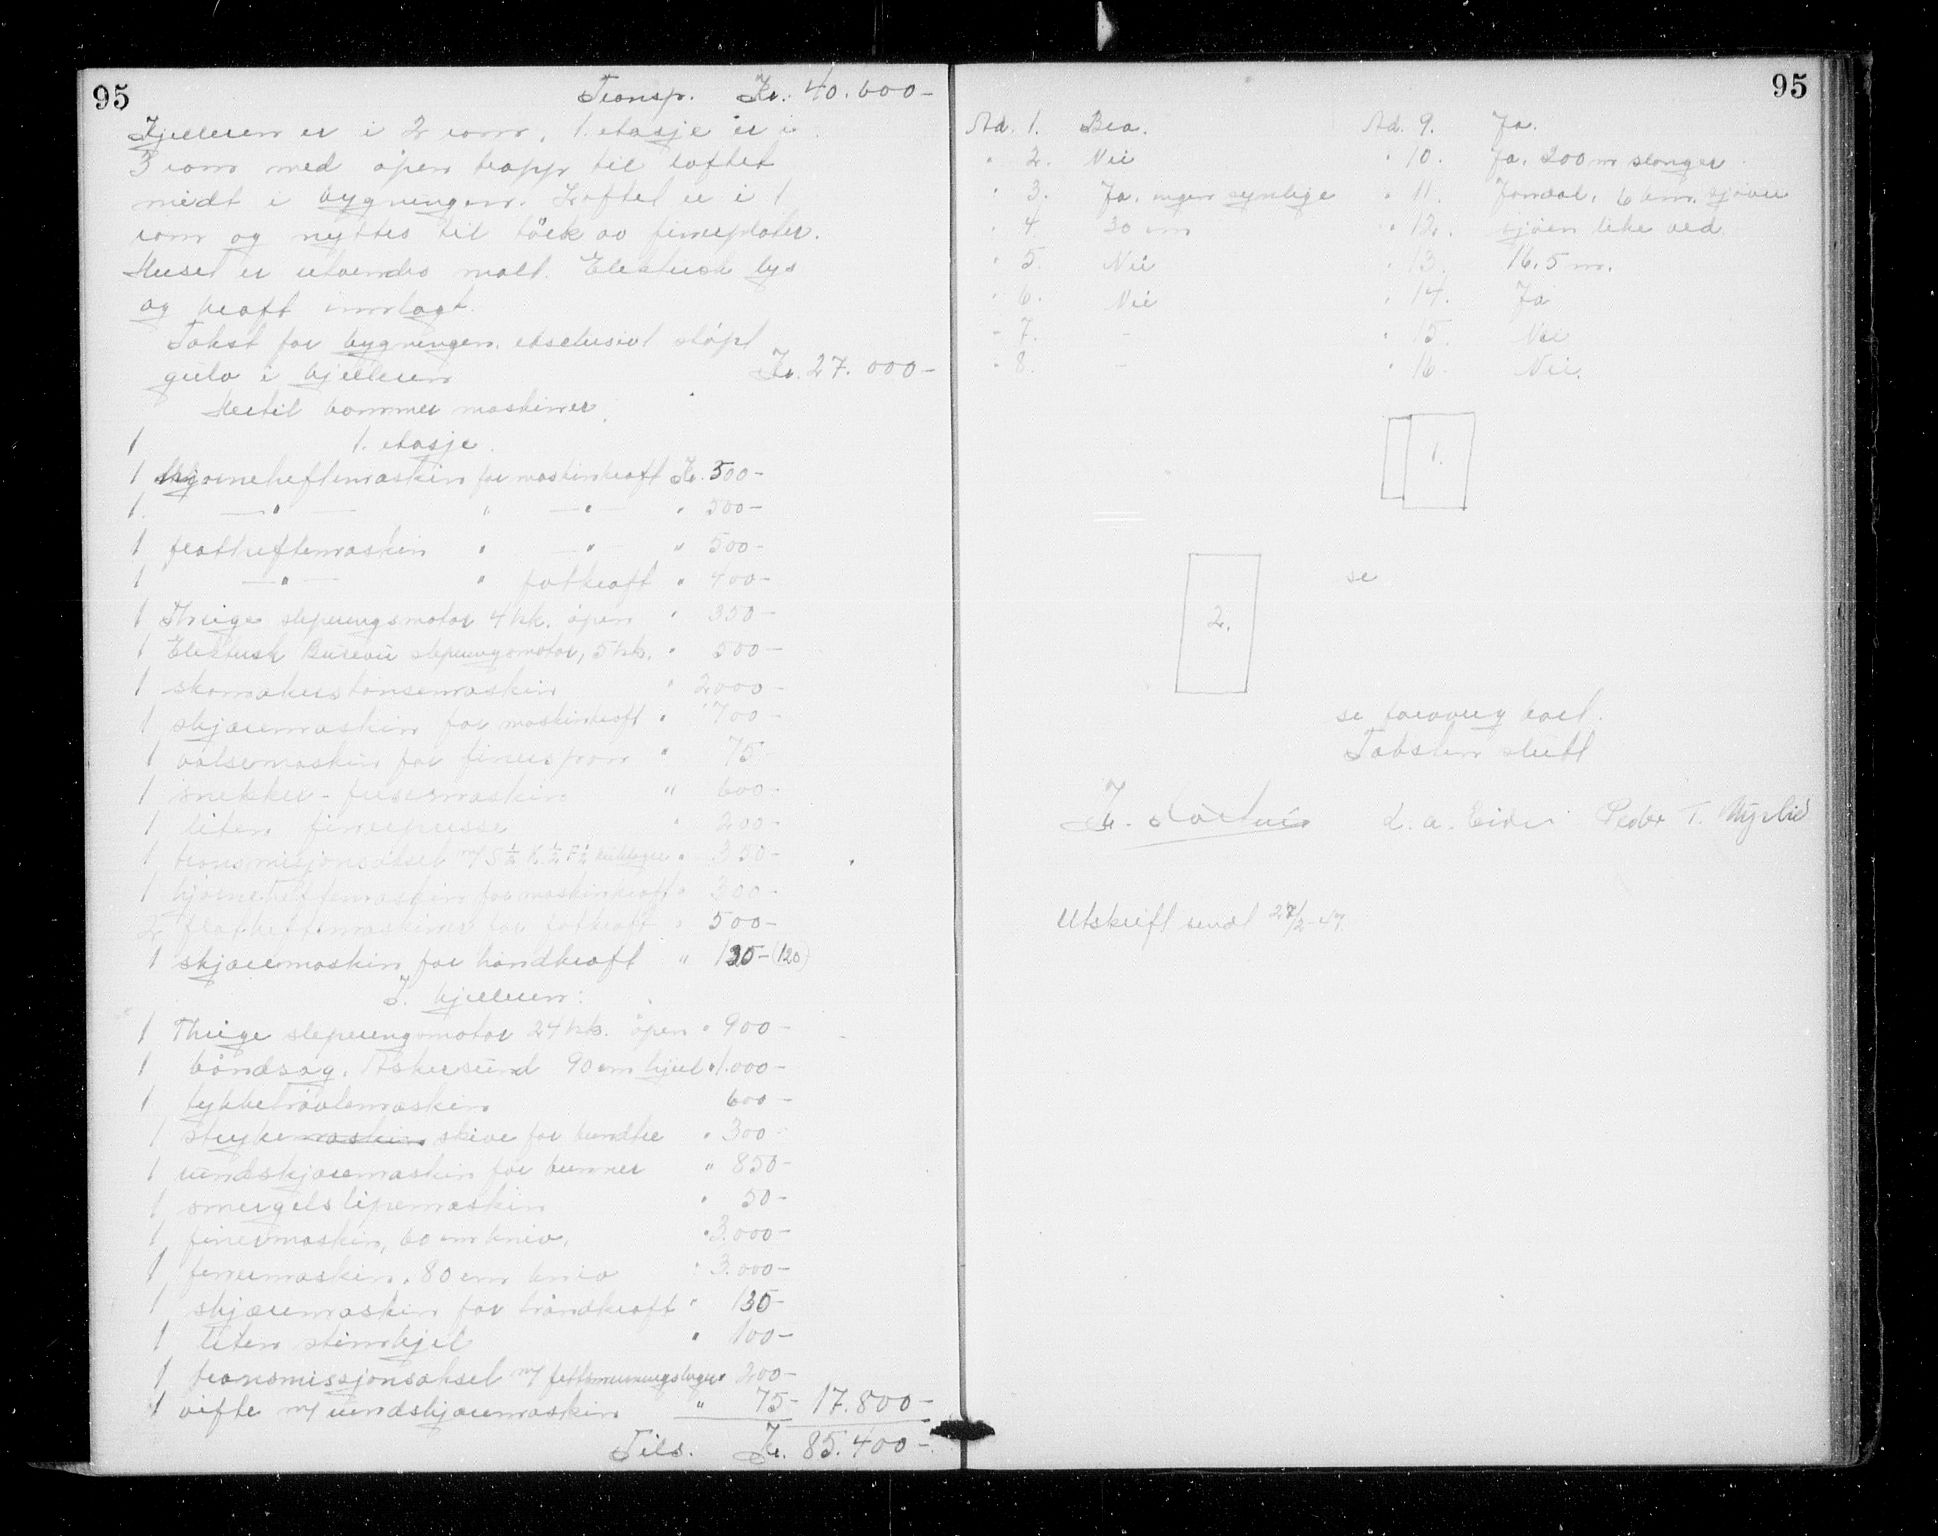 95
Transp. Kr. 40.600-
Kjelleren er i 2 rom, 1. etasje er i
3 rom med åpen trapp til loftet
midt i bygningen. Loftet er i 1
rom og nyttes til törk av finerplater.
Huset er utvendes malt. Elektrisk lys
og kraft innlagt.
Takst for bygningen, eksclusivt støpt
gulv i kjelleren Kr. 27.000-
Hertil kommer maskiner.
1 1. etasje.
1 hjørneheftemaskin for maskinkraft Kr. 500-
1 —"— " —"— " 500-
1 flatheftemaskin " —"— " 500-
1 —"— " fotkraft " 400-
1 Thrige sleperingsmotor 4 hk. åpen " 350-
1 Elektrisk Bureau sleperingsmotor, 5 hk. " 500-
1 skomakerstansemaskin " 2000-
1 skjæremaskin for maskinkraft " 700-
1 valsemaskin for finerspon " 75-
1 snekker-fresemaskin " 600-
1 liten finerpresse " 200-
1 transmisjonsaksel m/ S ½ K ½ F ½ kulelager " 350-
1 hjørneheftemaskin for maskinkraft " 300-
2 flatheftemaskiner for fotkraft " 500-
1 skjæremaskin for håndkraft " 130- (120)
I kjelleren:
1 Thrige sleperingsmotor 24 hk. åpen " 900-
1 båndsag, Askersund 90 cm hjul " 1.000-
1 tykkelhøvlemaskin 600-
1 strykemaskin skive for tundre " 300-
1 rundskjæremaskin for bunner " 850-
1 smergelslipemaskin " 50-
1 finermaskin, 60 cm kniv, " 3.000-
1 finermaskin, 80 cm kniv " 3.000-
1 skjæremaskin for håndkraft " 135-
1 liten stimkjel " 100-
1 transmissjonsaksel m/ fettsmurningslager " 200-
1 vifte m/ rundskjæremaskin " 75- 17.800-
Tils. Kr. 85.400-
95
Ad. 1. Bra. Ad. 9. Ja.
" 2. Nei " 10. Ja. 200 m slanger
" 3. Ja. ingen synlige " 11. Jondal, 6 km. sjøvei
" 4. 30 cm " 12. sjøen like ved.
" 5. Nei " 13. 16.5 m.
" 6. Nei " 14. Ja
" 7. - " 15. Nei
" 8. - " 16. Nei.
1.
se
2.
se forøvrig kart.
Taksten slutt
L. A. Eide Peder T.
Utskrift sendt 27/2-47.